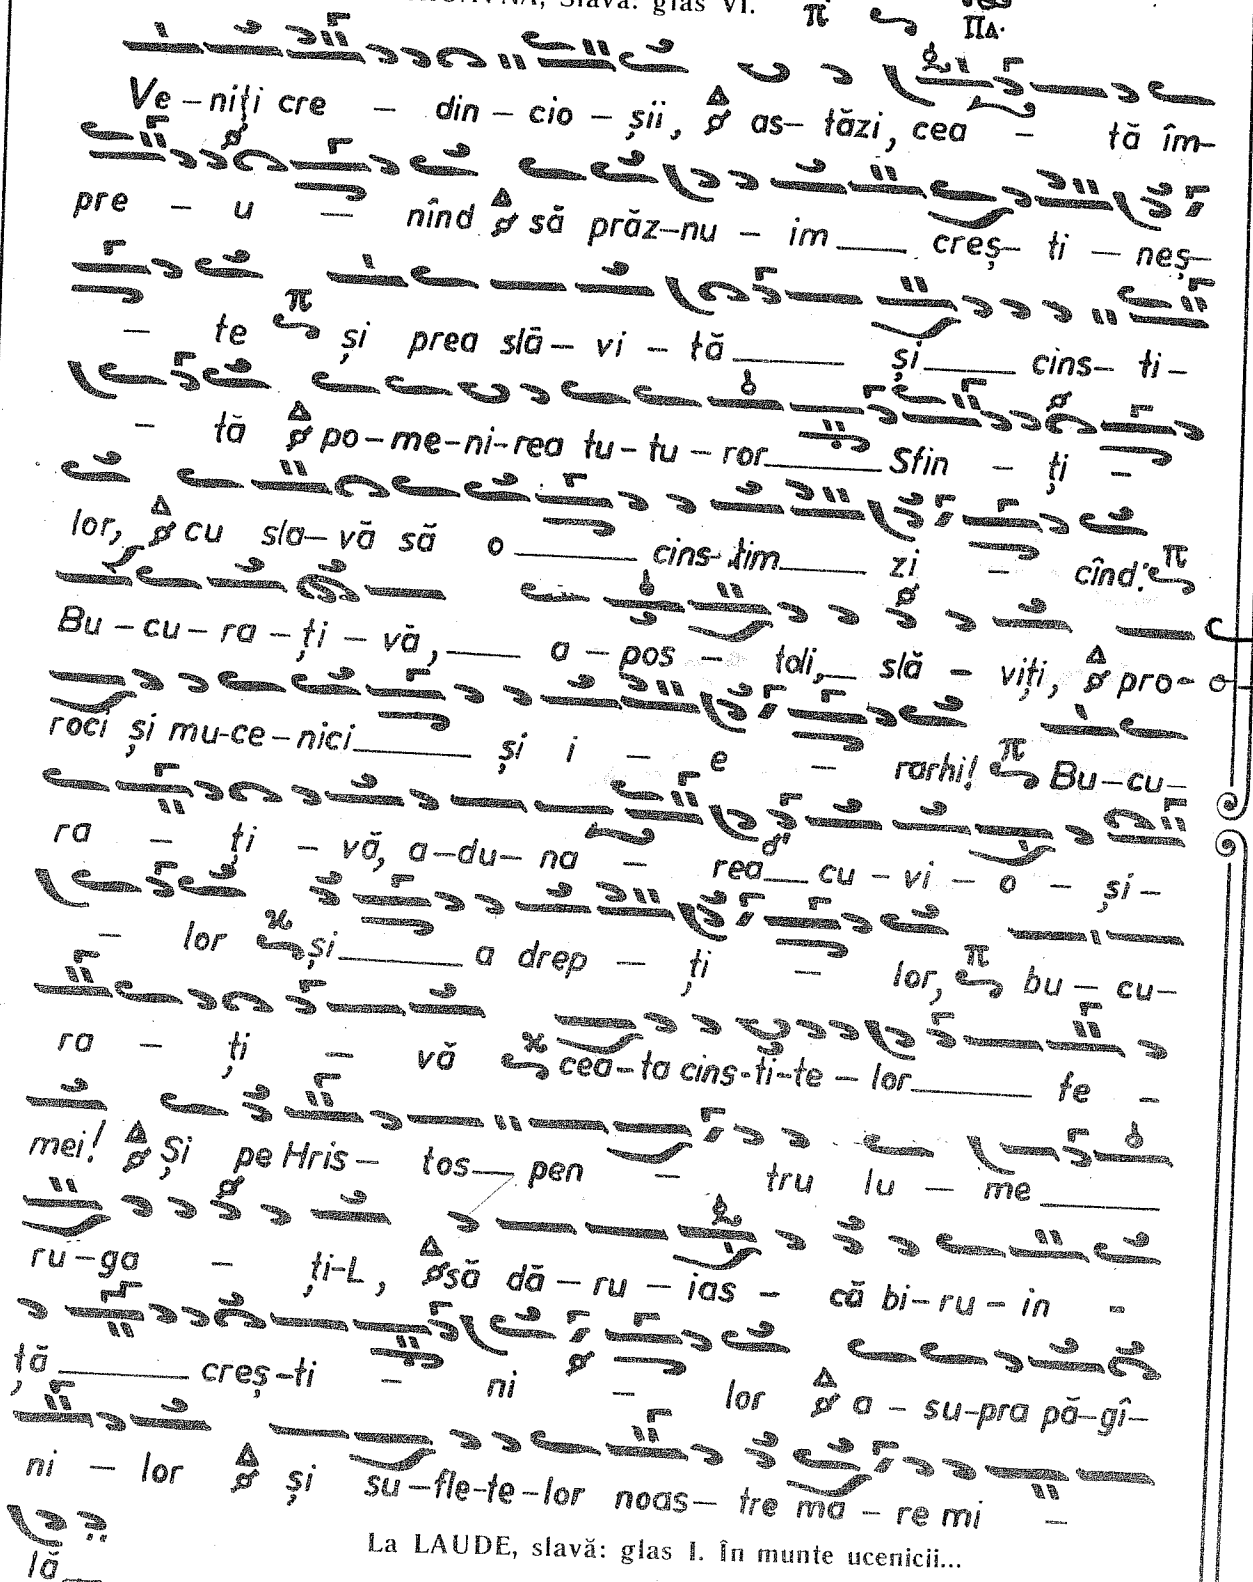 Slavă: glas VI. π Πα.
Ve – niți cre – din – cio – șii, Δ as – tăzi, cea – tă îm–
pre – u – nînd Δ să prăz–nu – im creș– ti – neș–
– te π și prea slă – vi – tă și cins– ti –
– tă Δ po–me–ni–rea tu–tu–ror Sfin – ți –
lor, Δ cu sla–vă să o cins–tim zi – cînd: π
Bu – cu – ra – ți – vă, a – pos – toli, slă – viți, Δ pro–
roci și mu–ce–nici și i – e – rarhi! π Bu–cu–
ra – ți – vă, a–du–na – rea cu – vi – o – și –
– lor ϰ și a drep – ți – lor, π bu – cu–
ra – ți – vă ϰ cea–ta cins–ti–te – lor fe –
mei! Δ Și pe Hris – tos pen – tru lu – me
ru–ga – ți–L, Δ să dă – ru – ias – că bi–ru–in –
ță creș–ti – ni – lor Δ a – su–pra pă–gî–
ni – lor Δ și su–fle–te–lor noas– tre ma – re mi –
lă
La LAUDE, slavă: glas I. În munte ucenicii...